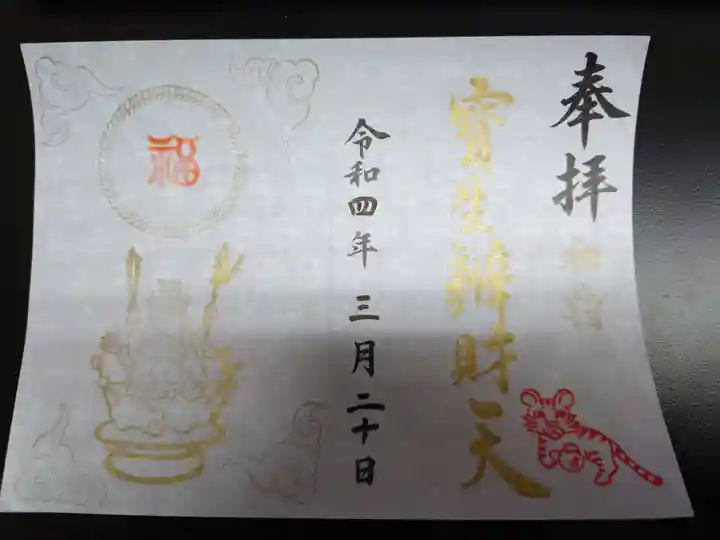 奉拝
初詣
寳生辨財天
令和四年 三月二十日
福